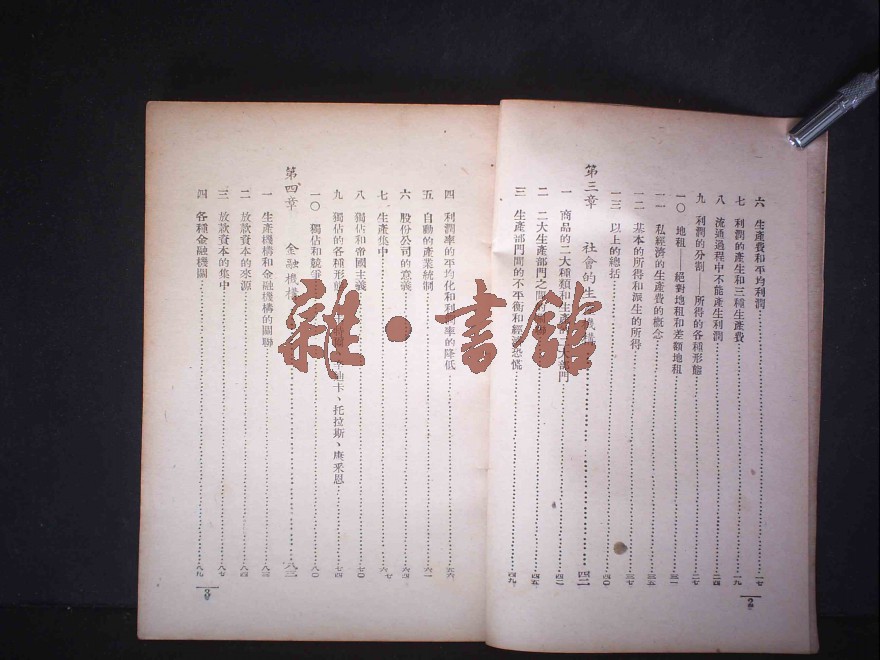 六 生產費和平均利潤 一七
七 利潤的產生和三種生產費 一九
八 流通過程中不能產生利潤 二四
九 利潤的分割——所得的各種形態 二七
一〇 地租——絕對地租和差額地租 三一
一一 私經濟的生產費的概念 三五
一二 基本的所得和派生的所得 三七
一三 以上的總括 四〇
第三章 社會的生 機構 四二
一 商品的二大種類和生產 二大部門 四二
二 二大生產部門之間的 四五
三 生產部門間的不平衡和經濟恐慌 四九
2
四 利潤率的平均化和利潤率的降低 五六
五 自動的產業統制 六一
六 股份公司的意義 六四
七 生產集中 六七
八 獨佔和帝國主義 七〇
九 獨佔的各種形態 迪卡、托拉斯、康采恩 七四
一〇 獨佔和競爭 八〇
第四章 金融機構 八三
一 生產機構和金融機構的關聯 八三
二 放款資本的來源 八四
三 放款資本的集中 八七
四 各種金融機關 八九
3
雜·書館